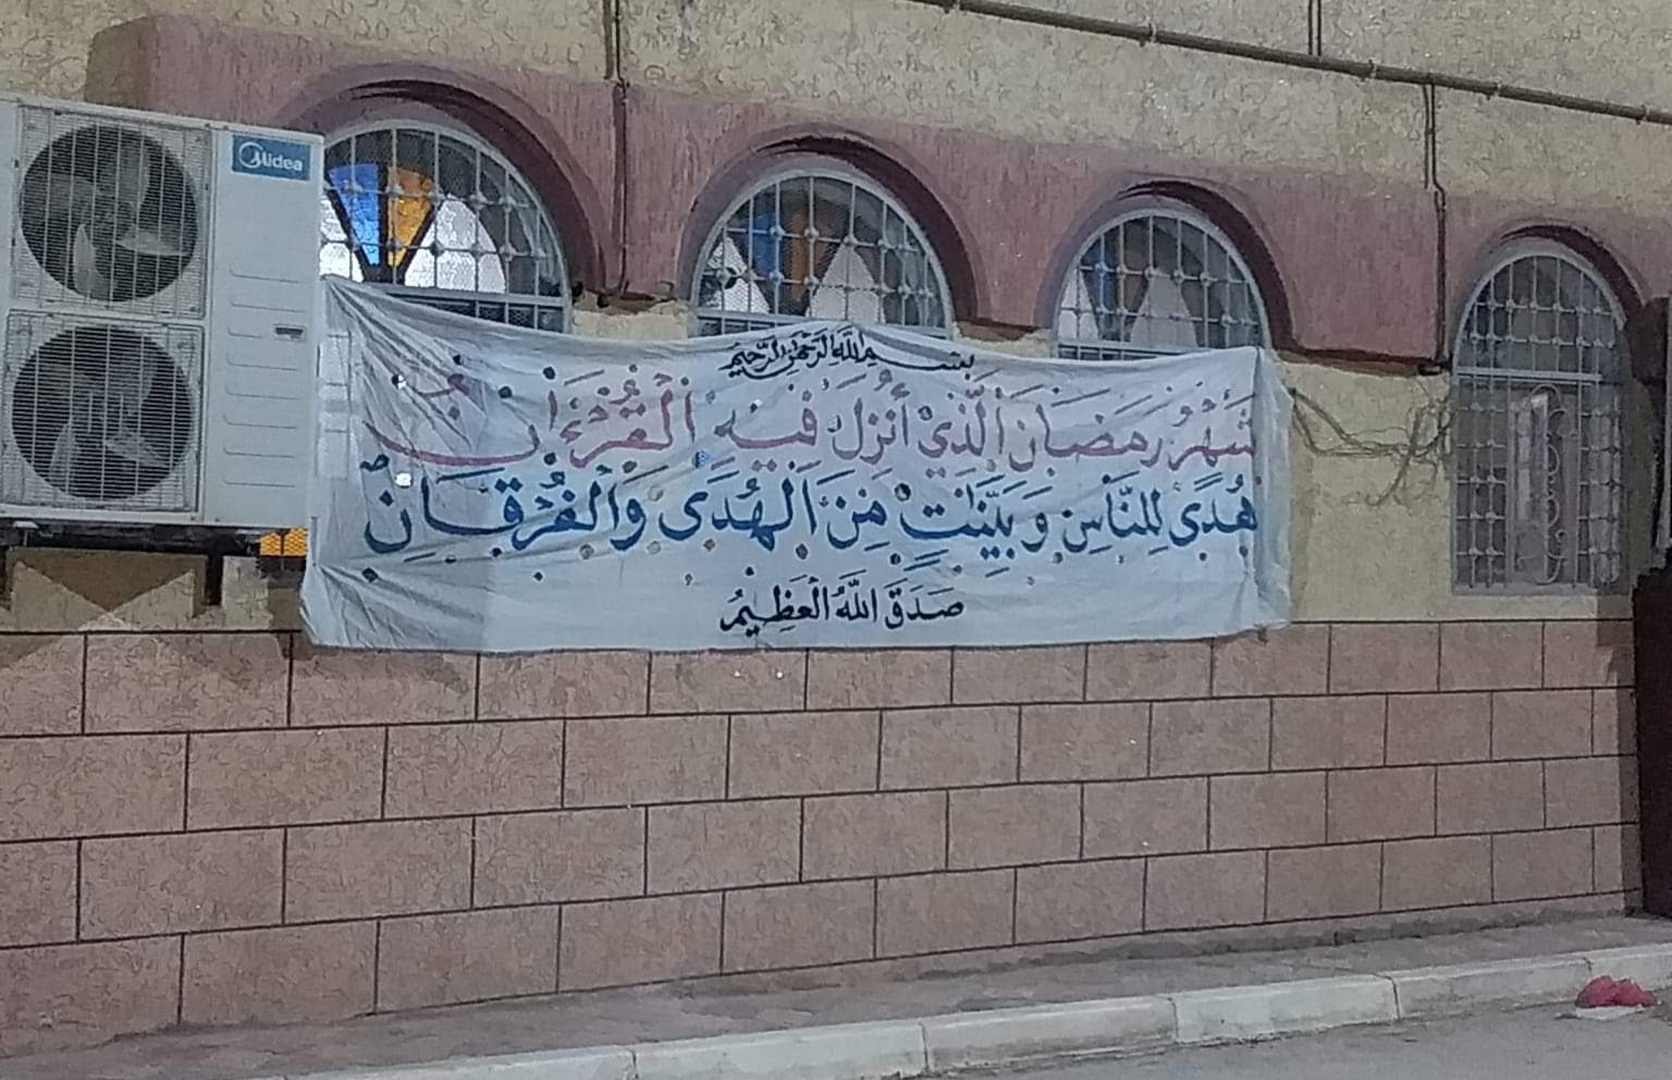 Midea
بسم الله الرحمن الرحيم
شَهْرُ رَمَضَانَ الَّذِي أُنزِلَ فِيهِ الْقُرْءَانُ
هُدًى لِلنَّاسِ وَبَيِّنَٰتٍ مِنَ الْهُدَى وَالْفُرْقَانِ
صَدَقَ اللَّهُ الْعَظِيمُ